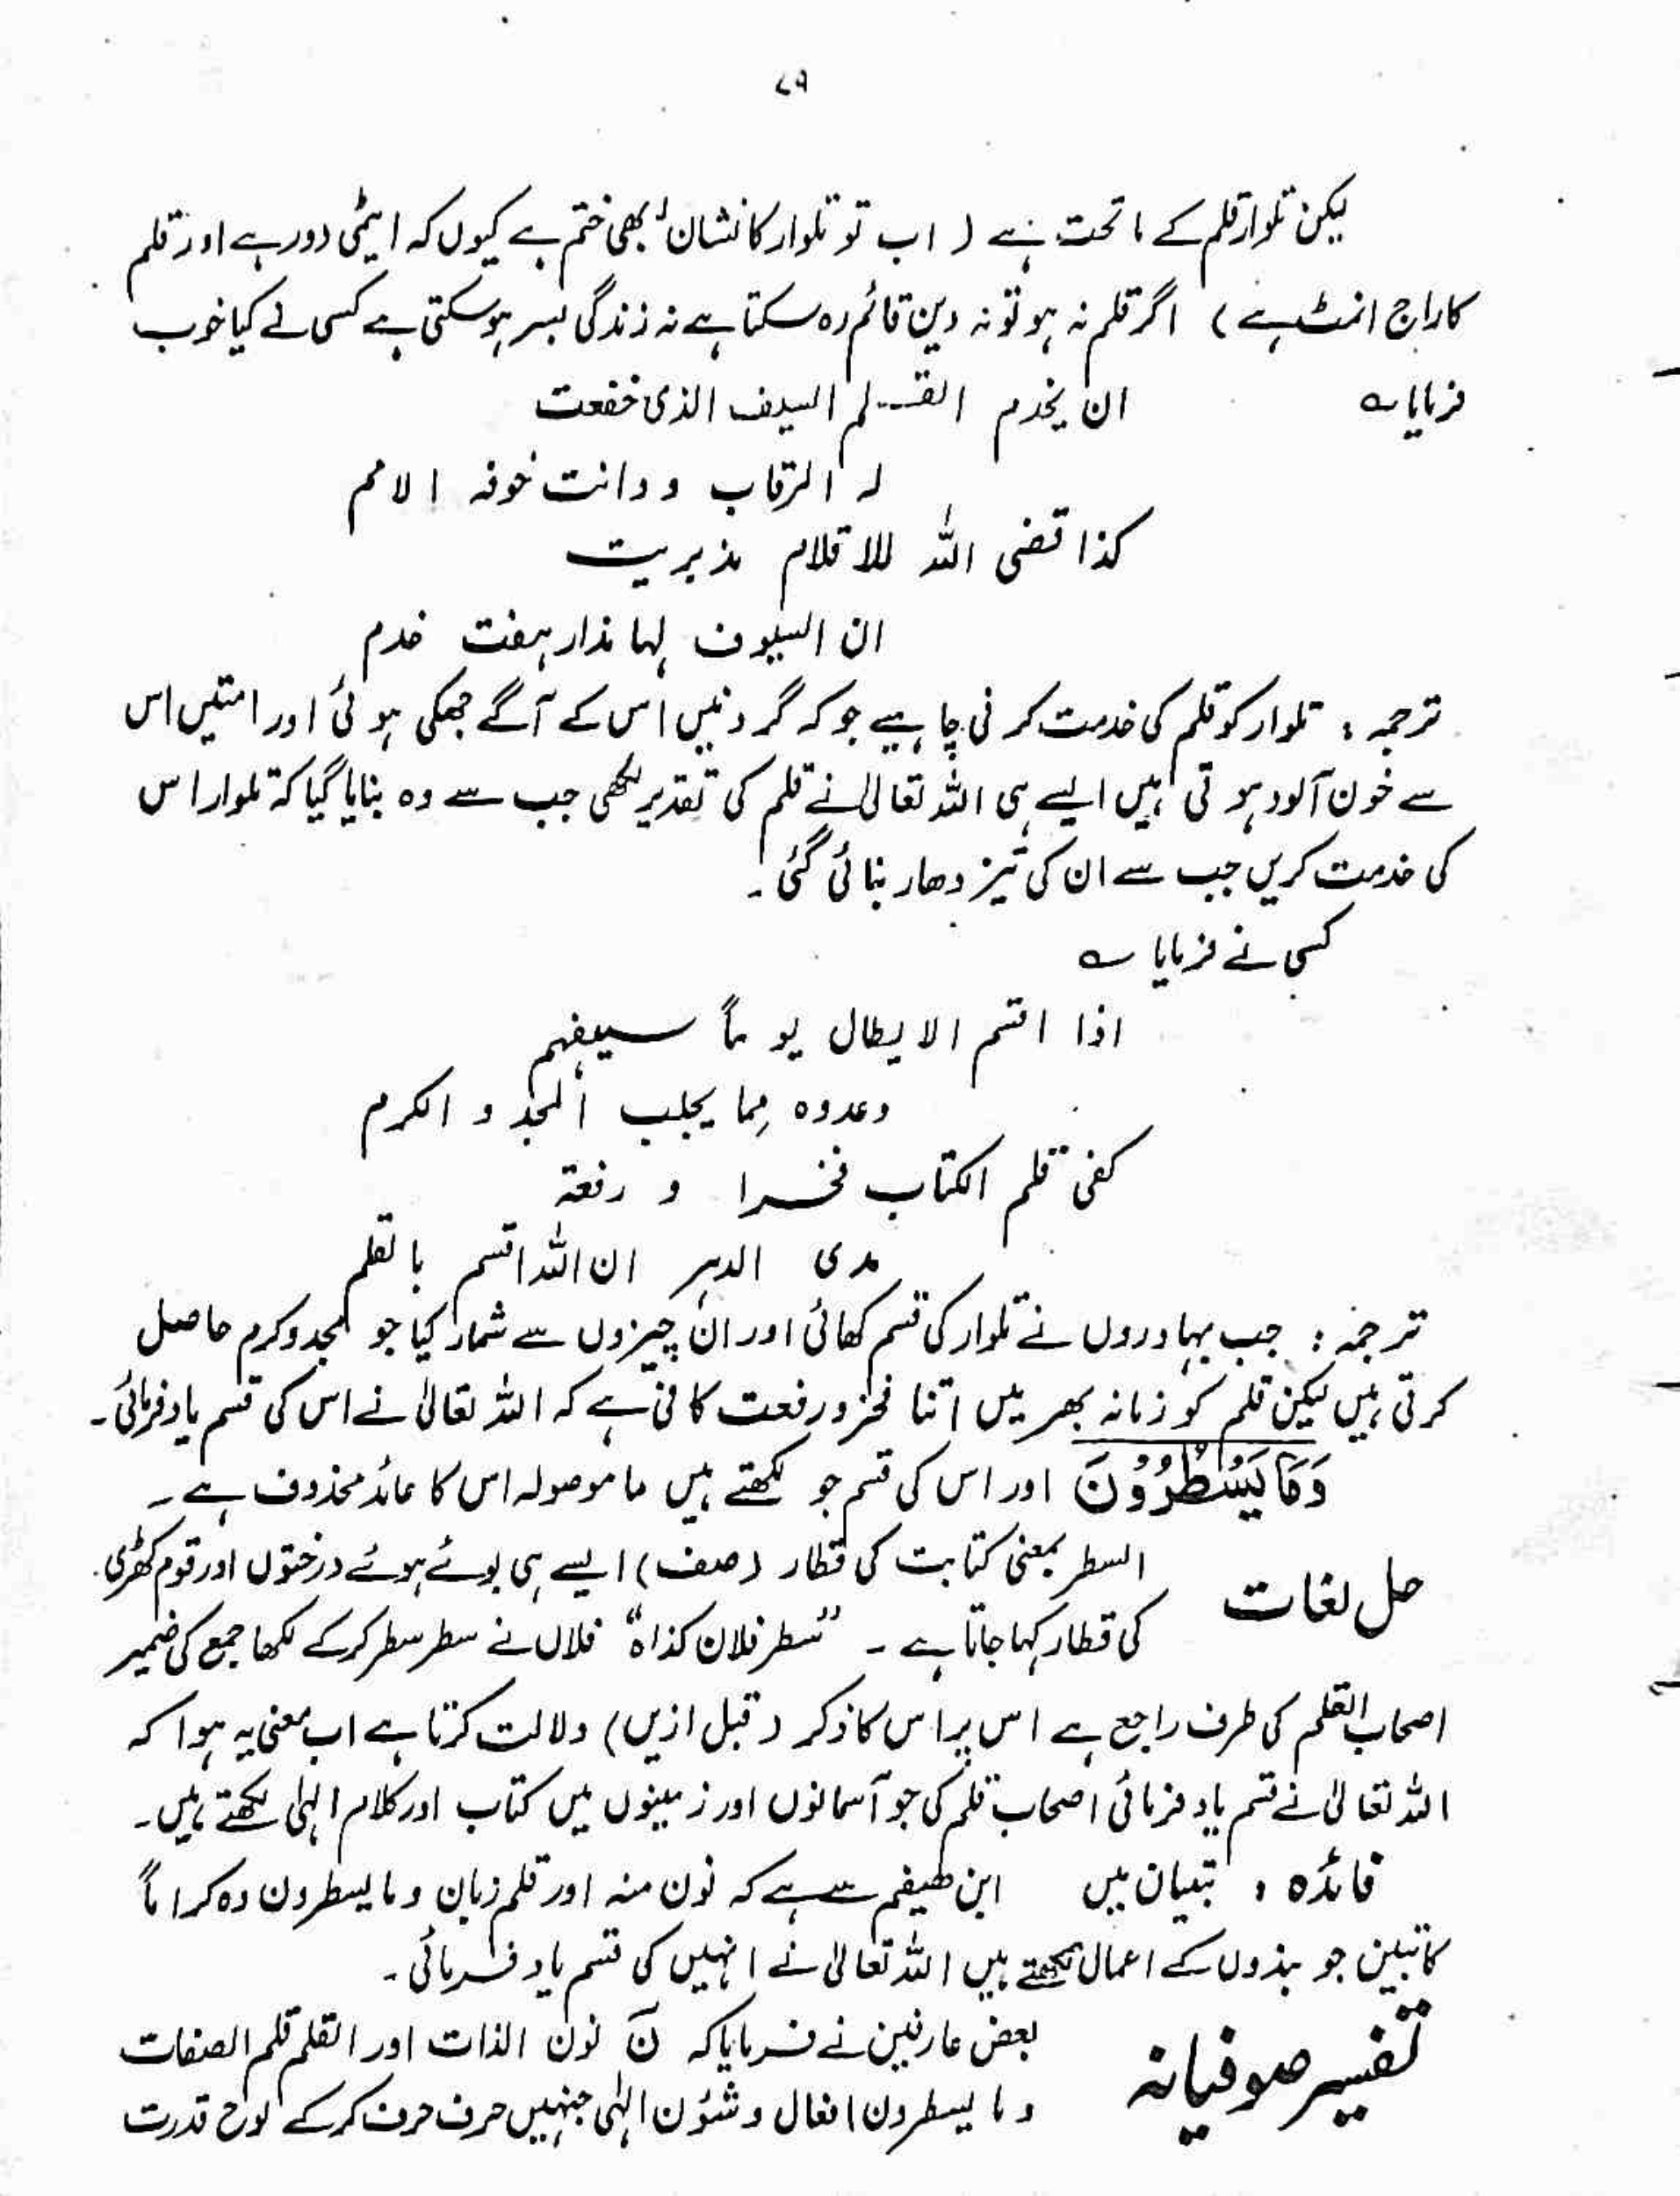 ۷۹
لیکن تلوار قلم کے ماتحت ہے ( اب تو تلوار کا نشان بھی ختم ہے کیوں کہ ایٹمی دور ہے اور قلم
کا راج انمٹ ہے ) اگر قلم نہ ہو تو نہ دین قائم رہ سکتا ہے نہ زندگی بسر ہو سکتی ہے کسی نے کیا خوب
فرمایا ؎ ان یخدم القلم السیف الذی خفعت
لہ الرقاب و دانت خوفہ الامم
کذا قضی اللہ للاقلام مذ بریت
ان السیوف لہا مذ ارہفت خدم
ترجمہ : تلوار کو قلم کی خدمت کرنی چاہیے جو کہ گردنیں اس کے آگے جھکی ہوئی اور امتیں اس
سے خون آلود ہوتی ہیں ایسے ہی اللہ تعالیٰ نے قلم کی تقدیر لکھی جب سے وہ بنایا گیا کہ تلوار اس
کی خدمت کریں جب سے ان کی تیز دھار بنائی گئی ۔
کسی نے فرمایا ؎
اذا اقسم الابطال یوماً سیفہم
وعدوہ مما یجلب المجد و الکرم
کفی قلم الکتاب فخرا و رفعۃ
مدی الدہر ان اللہ اقسم بالقلم
ترجمہ : جب بہادروں نے تلوار کی قسم کھائی اور ان چیزوں سے شمار کیا جو مجد و کرم حاصل
کرتی ہیں لیکن قلم کو زمانہ بھر میں اتنا فخر و رفعت کافی ہے کہ اللہ تعالیٰ نے اس کی قسم یاد فرمائی ۔
وَمَا يَسْطُرُوْنَ اور اس کی قسم جو لکھتے ہیں ما موصولہ اس کا عائد محذوف ہے ۔
حل لغات السطر بمعنی کتابت کی قطار (صف) ایسے ہی بوئے ہوئے درختوں اور قوم کھڑی
کی قطار کہا جاتا ہے ۔ ”سطر فلان کذاہ“ فلاں نے سطر سطر کرکے لکھا جمع کی ضمیر
اصحاب القلم کی طرف راجع ہے اس پر اس کا ذکر (قبل ازیں) دلالت کرتا ہے اب معنی یہ ہوا کہ
اللہ تعالیٰ نے قسم یاد فرمائی اصحاب قلم کی جو آسمانوں اور زمینوں میں کتاب اور کلام الٰہی لکھتے ہیں ۔
فائدہ : تبیان میں ابن ھیفم سے ہے کہ نون منہ اور قلم زبان وما یسطرون وہ کراماً
کاتبین جو بندوں کے اعمال لکھتے ہیں اللہ تعالیٰ نے انہیں کی قسم یاد فرمائی ۔
تفسیر صوفیانہ بعض عارفین نے فرمایا کہ نٓ نون الذات اور القلم قلم الصفات
وما یسطرون افعال و شئون الٰہی جنہیں حرف حرف کرکے لوح قدرت